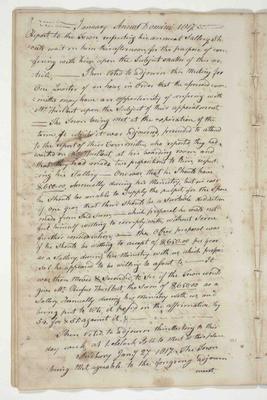 January Annoct Domini 1817
Report to the Town respecting his annual Sallery &
wait on him this afternoon for the purpose of con
fering with him upon the Subject matter of this ar
ticle, Then Voted to Adjourn this Meeting for
One Quarter of an hour, in Order that the aforesaid com
mittee may have an oppertunity of confering with
Mr Thurlbut upon the Subject of their appointment
The Town being met at the expiration of the
term for which it was Adjourned proceeded to attend
to the report of their Committee, who reported they had
waited on at his boarding house and
that he had made two propositions to them respect
ing his Sallery One was that he Should have
$600.00 Annually during his Ministry, but in case
he Should be unable to Supply the pulpit for the Space
of one year that there Should be a Suitable deduction
made from Said Sum, which proposal he could not
find himself willing to comply with without Some
further consideration, the Other proposal was
if he Should be willing to accept of $650.00 per year
as a Sallery during his Ministry with us, which propo
Sal he appeared to be willing to agree to It
was then Moved & Seconded to See if the Town would
give Mr. Thurlbut, the Sum of $650.00 as a
Sallery Annually during his Ministry with us, and
being put to Vote, it passed in the affirmative by
54 for & 51 against it,
Then Voted to Adjourn this Meeting to this
day week at o'clock P.M. to Met at this place
Monday Jany 27 1817 The Town
being Met agreable to the foregoing Adjourn
ment